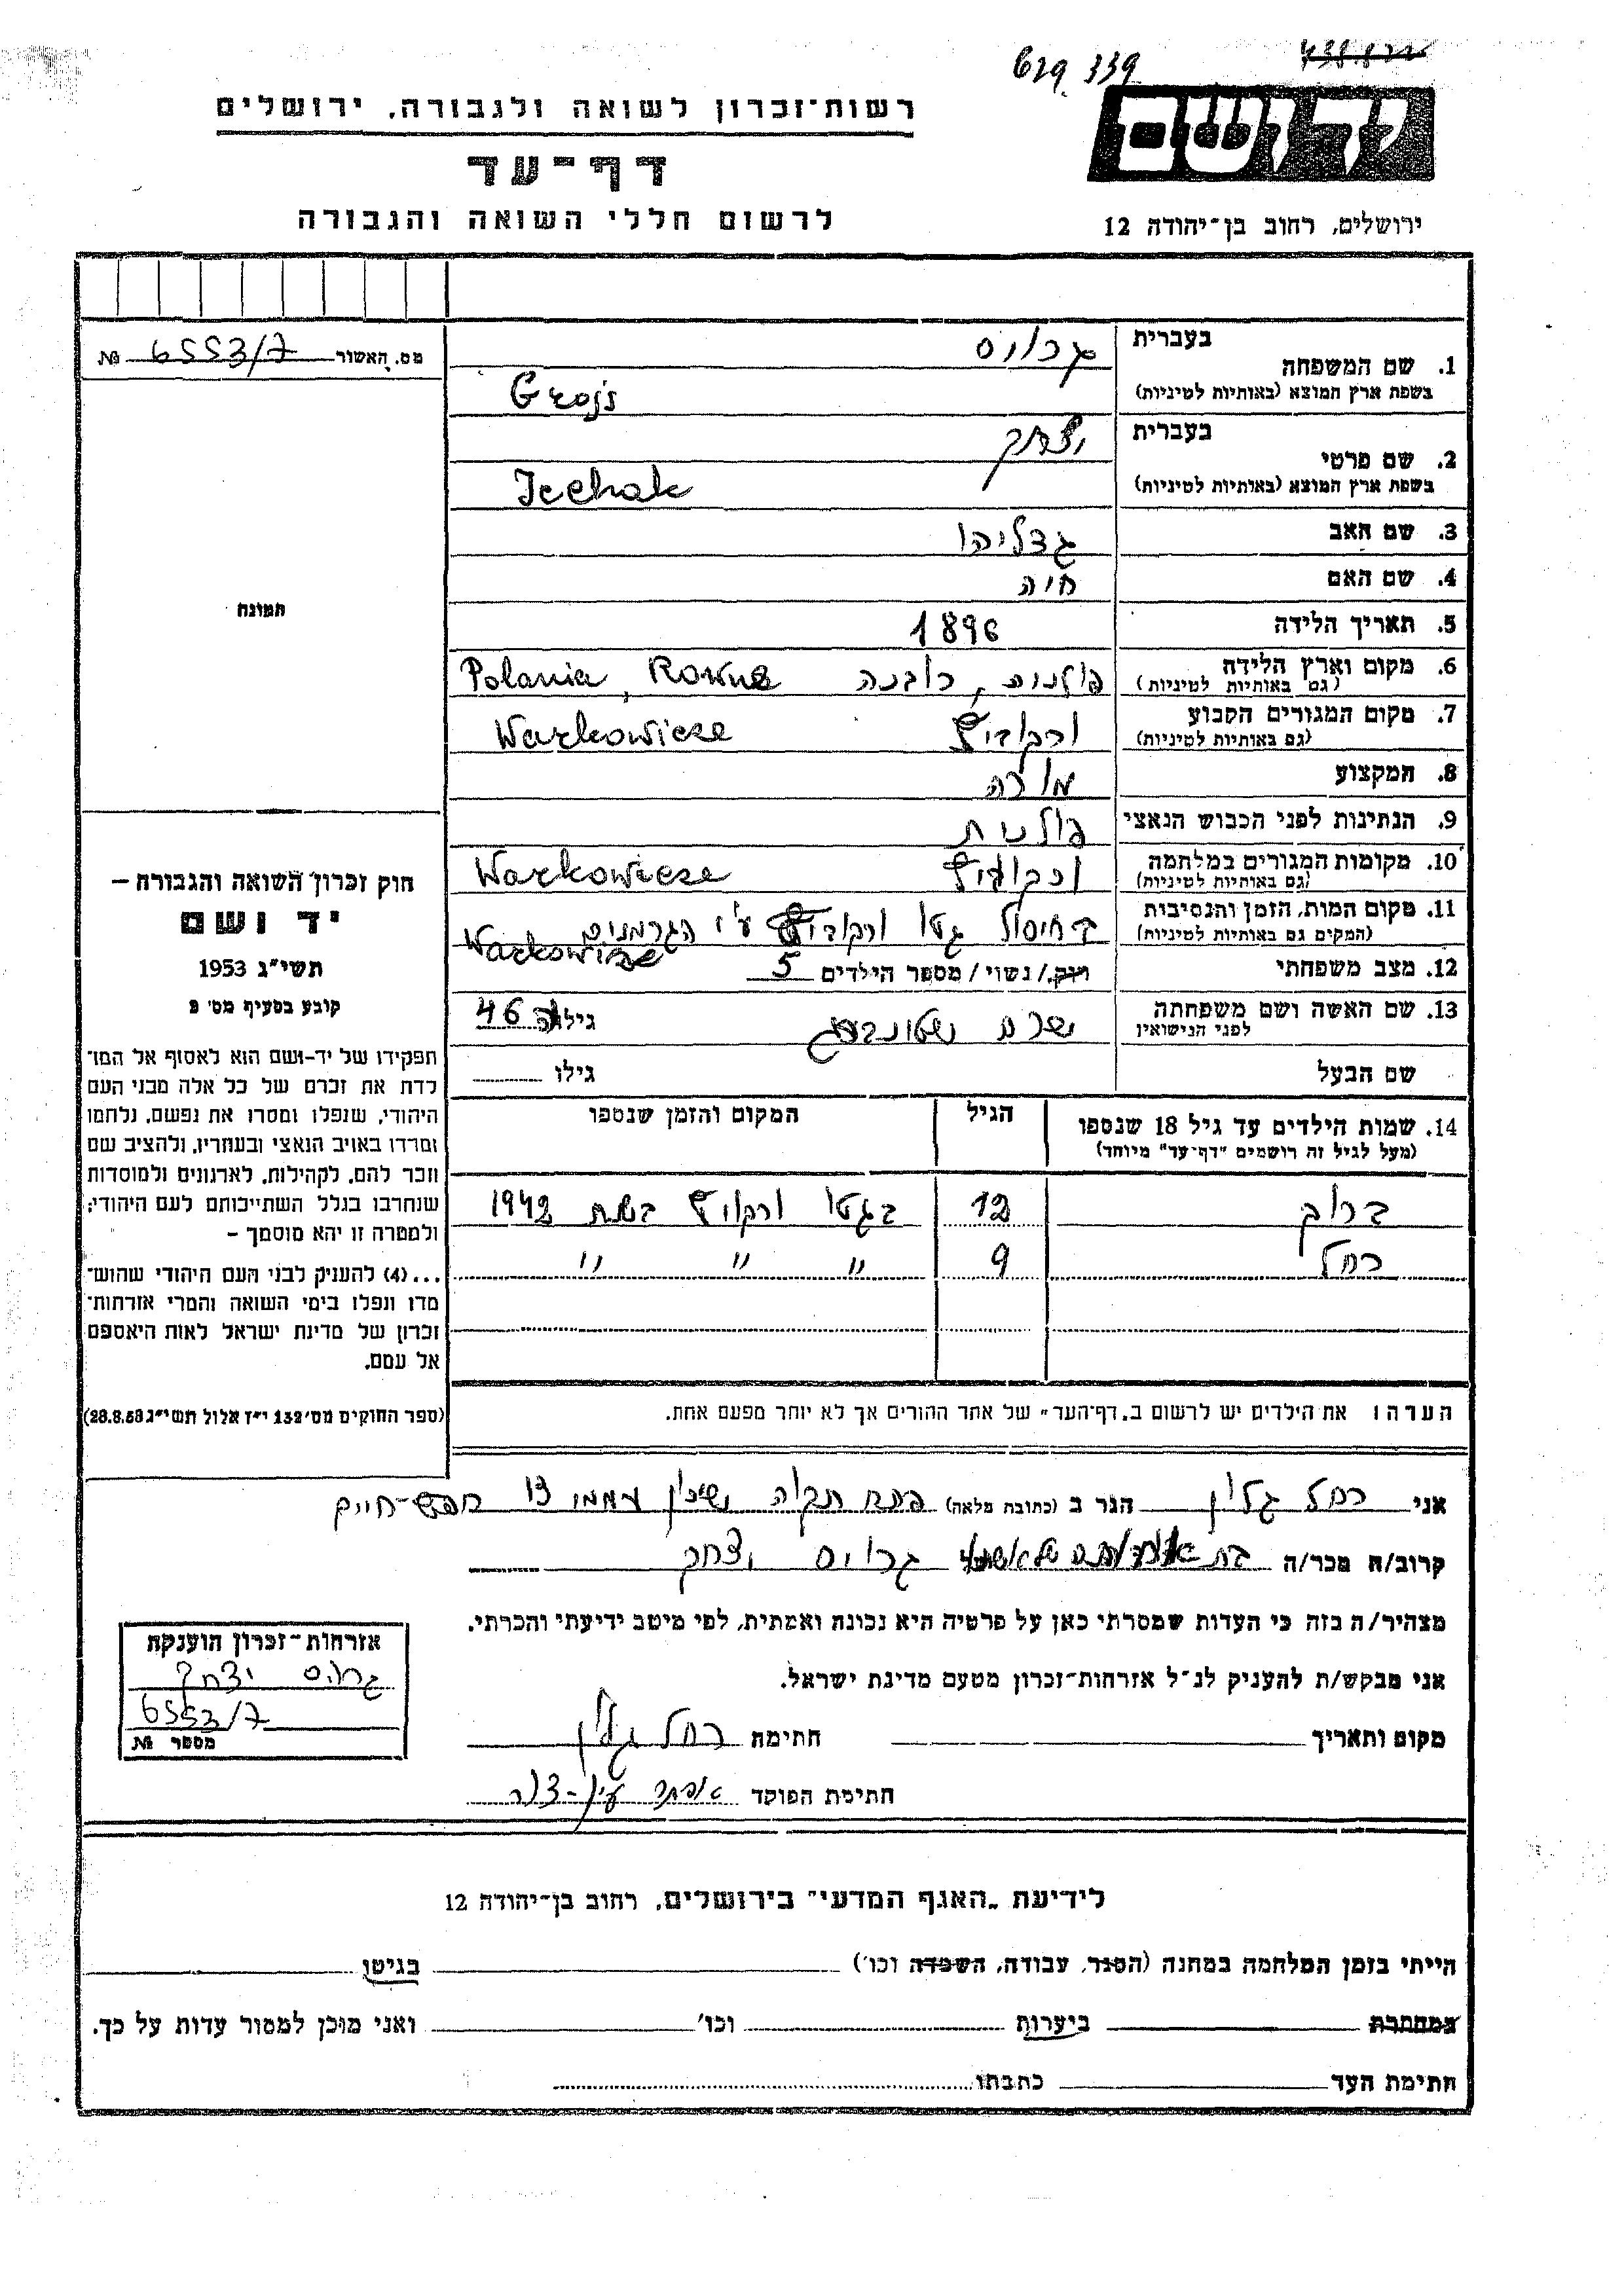 גרס 339
רשות־זכרון לשואה ולגבורה, ירושלים
דף־עד
לרשום חללי השואה והגבורה
ידושם
ירושלים, רחוב בן־יהודה 12
מס. האשור 6553/7 №
תמונה
1. שם המשפחה
בעברית גרויס
בשפת ארץ המוצא (באותיות לטיניות) Grojs
2. שם פרטי
בעברית יצחק
בשפת ארץ המוצא (באותיות לטיניות) Icchak
3. שם האב גדליהו
4. שם האם חיה
5. תאריך הלידה 1896
6. מקום וארץ הלידה פולניה, רובנה Polania, Rowne
(גם באותיות לטיניות)
7. מקום המגורים הקבוע Warkowicze
(גם באותיות לטיניות)
8. המקצוע מורה
9. הנתינות לפני הכבוש הנאצי פולנית
10. מקומות המגורים במלחמה Warkowicze
(גם באותיות לטיניות)
11. מקום המות, הזמן והנסיבות בחיסול גטו ורקוביץ ע"י הגרמנים
(המקום גם באותיות לטיניות) Warkowicze
12. מצב משפחתי רווק / נשוי / מספר הילדים 5
13. שם האשה ושם משפחתה שרה שטונברג גילה 46
לפני הנישואין
שם הבעל גילו
14. שמות הילדים עד גיל 18 שנספו הגיל המקום והזמן שנספו
(מעל לגיל זה רושמים "דף־עד" מיוחד)
ברוך 12 בגטו ורקוביץ בשנת 1942
רחל 9 " " "
הערה: את הילדים יש לרשום ב„דף־העד" של אחד ההורים אך לא יותר מפעם אחת.
חוק זכרון השואה והגבורה –
יד ושם
תשי"ג 1953
קובע בסעיף מס' 2
תפקידו של יד-ושם הוא לאסוף אל המו־
לדת את זכרם של כל אלה מבני העם
היהודי, שנפלו ומסרו את נפשם, נלחמו
ומרדו באויב הנאצי ובעוזריו, ולהציב שם
וזכר להם, לקהילות, לארגונים ולמוסדות
שנחרבו בגלל השתייכותם לעם היהודי;
ולמטרה זו יהא מוסמך –
...(4) להעניק לבני העם היהודי שהוש־
מדו ונפלו בימי השואה והמרי אזרחות־
זכרון של מדינת ישראל לאות היאספם
אל עמם.
(ספר החוקים מס' 132 י"ז אלול תשי"ג 28.8.53)
אני רחל גלין הגר ב (כתובת מלאה) פתח תקוה שיכון עממי 13 חפץ-חיים
קרוב/ה מכר/ה בת גרויס יצחק
מצהיר/ה בזה כי העדות שמסרתי כאן על פרטיה היא נכונה ואמתית, לפי מיטב ידיעתי והכרתי.
אני מבקש/ת להעניק לנ"ל אזרחות־זכרון מטעם מדינת ישראל.
מקום ותאריך חתימה רחל גלין
חתימת הפוקד
אזרחות־זכרון הוענקה
גרויס יצחק
6553/7
מספר №
לידיעת „האגף המדעי" בירושלים, רחוב בן־יהודה 12
הייתי בזמן המלחמה במחנה (הסגר, עבודה, השמדה וכו') בגיטו
במחתרת ביערות וכו' ואני מוכן למסור עדות על כך.
חתימת העד כתבתו